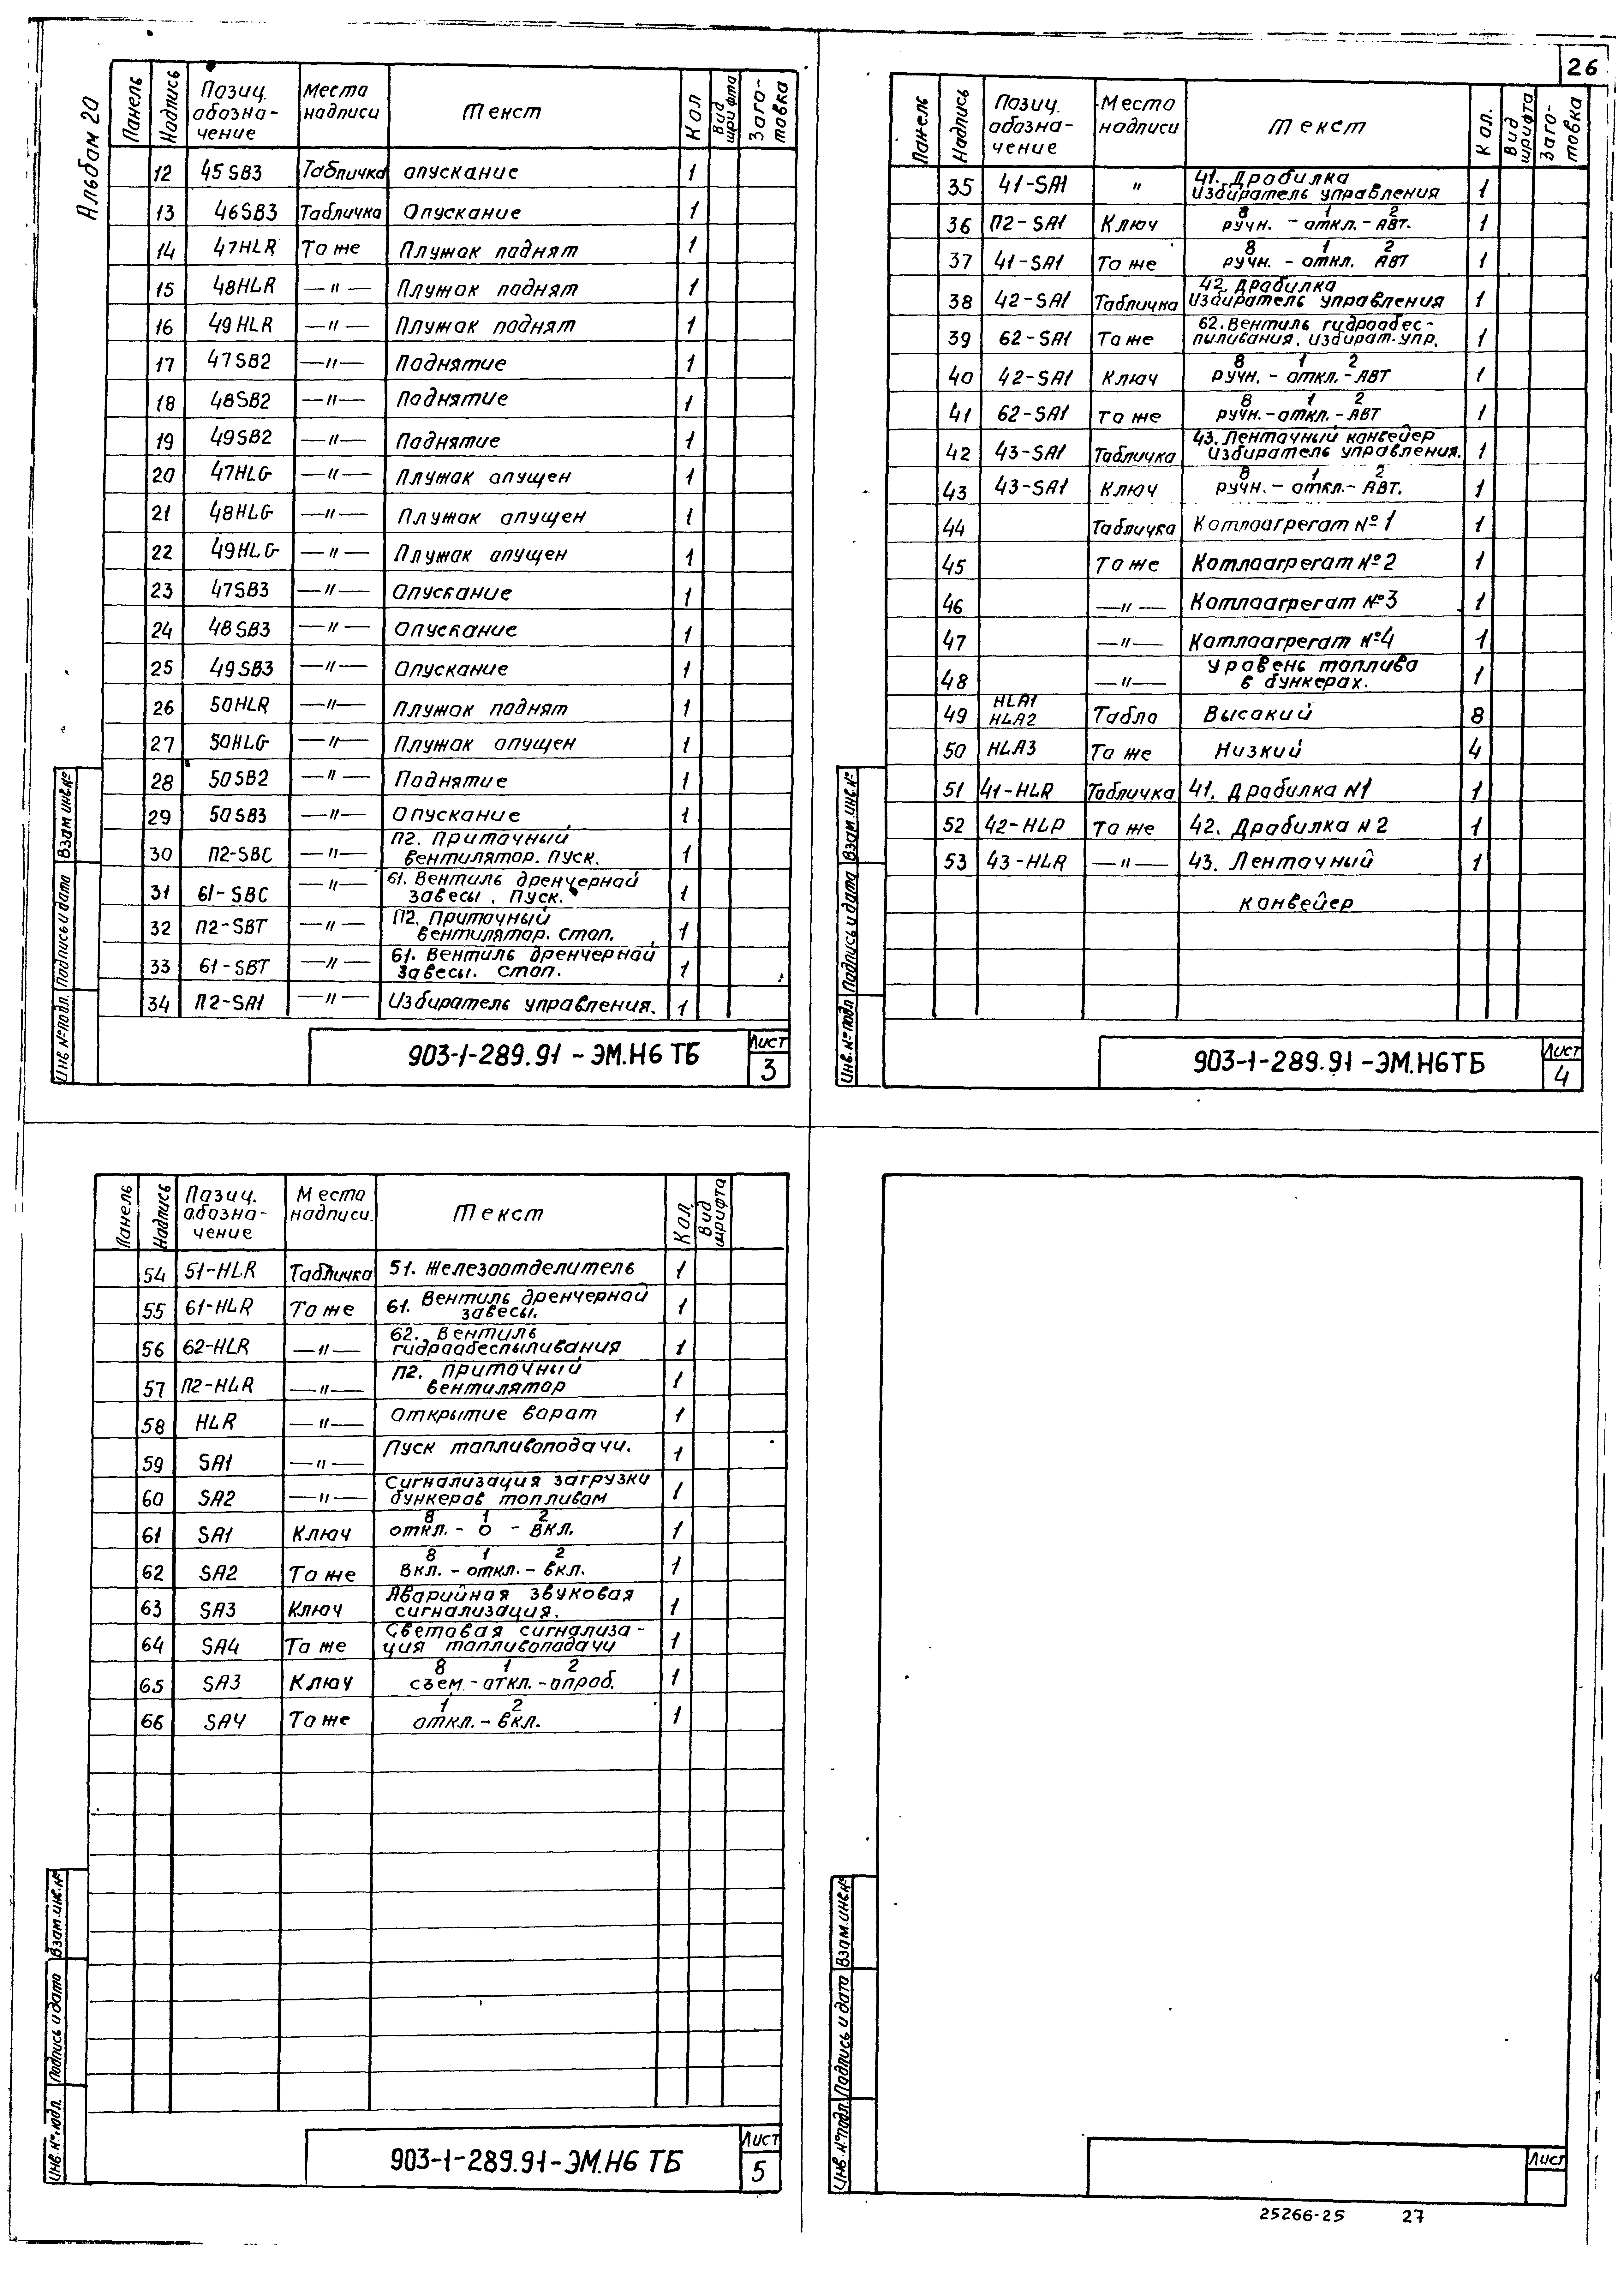 26
Альбом 20
Панель Надпись Позиц. обозна- чение Место надписи Текст Кол Вид шрифта Заго- товка
12 45SB3 Табличка опускание 1
13 46SB3 Табличка Опускание 1
14 47HLR То же Плужок поднят 1
15 48HLR —〃— Плужок поднят 1
16 49HLR —〃— Плужок поднят 1
17 47SB2 —〃— Поднятие 1
18 48SB2 —〃— Поднятие 1
19 49SB2 —〃— Поднятие 1
20 47HLG —〃— Плужок опущен 1
21 48HLG —〃— Плужок опущен 1
22 49HLG —〃— Плужок опущен 1
23 47SB3 —〃— Опускание 1
24 48SB3 —〃— Опускание 1
25 49SB3 —〃— Опускание 1
26 50HLR —〃— Плужок поднят 1
27 50HLG —〃— Плужок опущен 1
28 50SB2 —〃— Поднятие 1
29 50SB3 —〃— Опускание 1
30 П2-SBC —〃— П2. Приточный
вентилятор. пуск. 1
31 61-SBC —〃— 61. Вентиль дренчерной
завесы. Пуск. 1
32 П2-SBT —〃— П2. Приточный
вентилятор. стоп. 1
33 61-SBT —〃— 61. Вентиль дренчерной
завесы. стоп. 1
34 П2-SA1 —〃— Избиратель управления. 1
Взам инв.№
Подпись и дата
Инв № подл.
903-1-289.91-ЭМ.Н6 ТБ
Лист
3
Панель Надпись Позиц. обозна- чение Место надписи Текст Кол. Вид шрифта Заго- товка
35 41-SA1 〃 41. Дробилка
Избиратель управления 1
36 П2-SA1 Ключ 8 1 2
ручн. - откл. - АВТ. 1
37 41-SA1 То же 8 1 2
ручн. - откл. АВТ 1
38 42-SA1 Табличка 42. Дробилка
Избиратель управления 1
39 62-SA1 То же 62. Вентиль гидрообес-
пыливания. избират. упр. 1
40 42-SA1 Ключ 8 1 2
ручн. - откл. - АВТ 1
41 62-SA1 то же 8 1 2
ручн. - откл. - АВТ 1
42 43-SA1 Табличка 43. Ленточный конвейер
Избиратель управления. 1
43 43-SA1 Ключ 8 1 2
ручн. - откл. - АВТ. 1
44 Табличка Котлоагрегат №1 1
45 То же Котлоагрегат №2 1
46 —〃— Котлоагрегат №3 1
47 —〃— Котлоагрегат №4 1
48 —〃— Уровень топлива
в бункерах. 1
49 HLA1
HLA2 Табло Высокий 8
50 HLA3 То же Низкий 4
51 41-HLR Табличка 41. Дробилка N1 1
52 42-HLP То же 42. Дробилка N2 1
53 43-HLR —〃— 43. Ленточный 1
конвейер
Взам.инв.№
Подпись и дата
Инв.№ подл
903-1-289.91-ЭМ.Н6ТБ
Лист
4
Панель Надпись Позиц. обозна- чение Место надписи. Текст Кол. Вид шрифта
54 51-HLR Табличка 51. Железоотделитель 1
55 61-HLR То же 61. Вентиль дренчерной
завесы. 1
56 62-HLR —〃— 62. Вентиль
гидрообеспыливания 1
57 П2-HLR —〃— П2. Приточный
вентилятор 1
58 HLR —〃— Открытие ворот 1
59 SA1 —〃— Пуск топливоподачи. 1
60 SA2 —〃— Сигнализация загрузки
бункеров топливом 1
61 SA1 Ключ 8 1 2
откл. - 0 - ВКЛ. 1
62 SA2 То же 8 1 2
Вкл. - откл. - вкл. 1
63 SA3 Ключ Аварийная звуковая
сигнализация. 1
64 SA4 То же Световая сигнализа-
ция топливоподачи 1
65 SA3 Ключ 8 1 2
съем. - откл. - опроб. 1
66 SA4 То же 1 2
откл. - вкл. 1
Взам.инв.№
Подпись и дата
Инв.№ подл.
903-1-289.91-ЭМ.Н6 ТБ
Лист
5
Взам.инв.№
Подпись и дата
Инв.№ подл.
Лист
25266-25 27